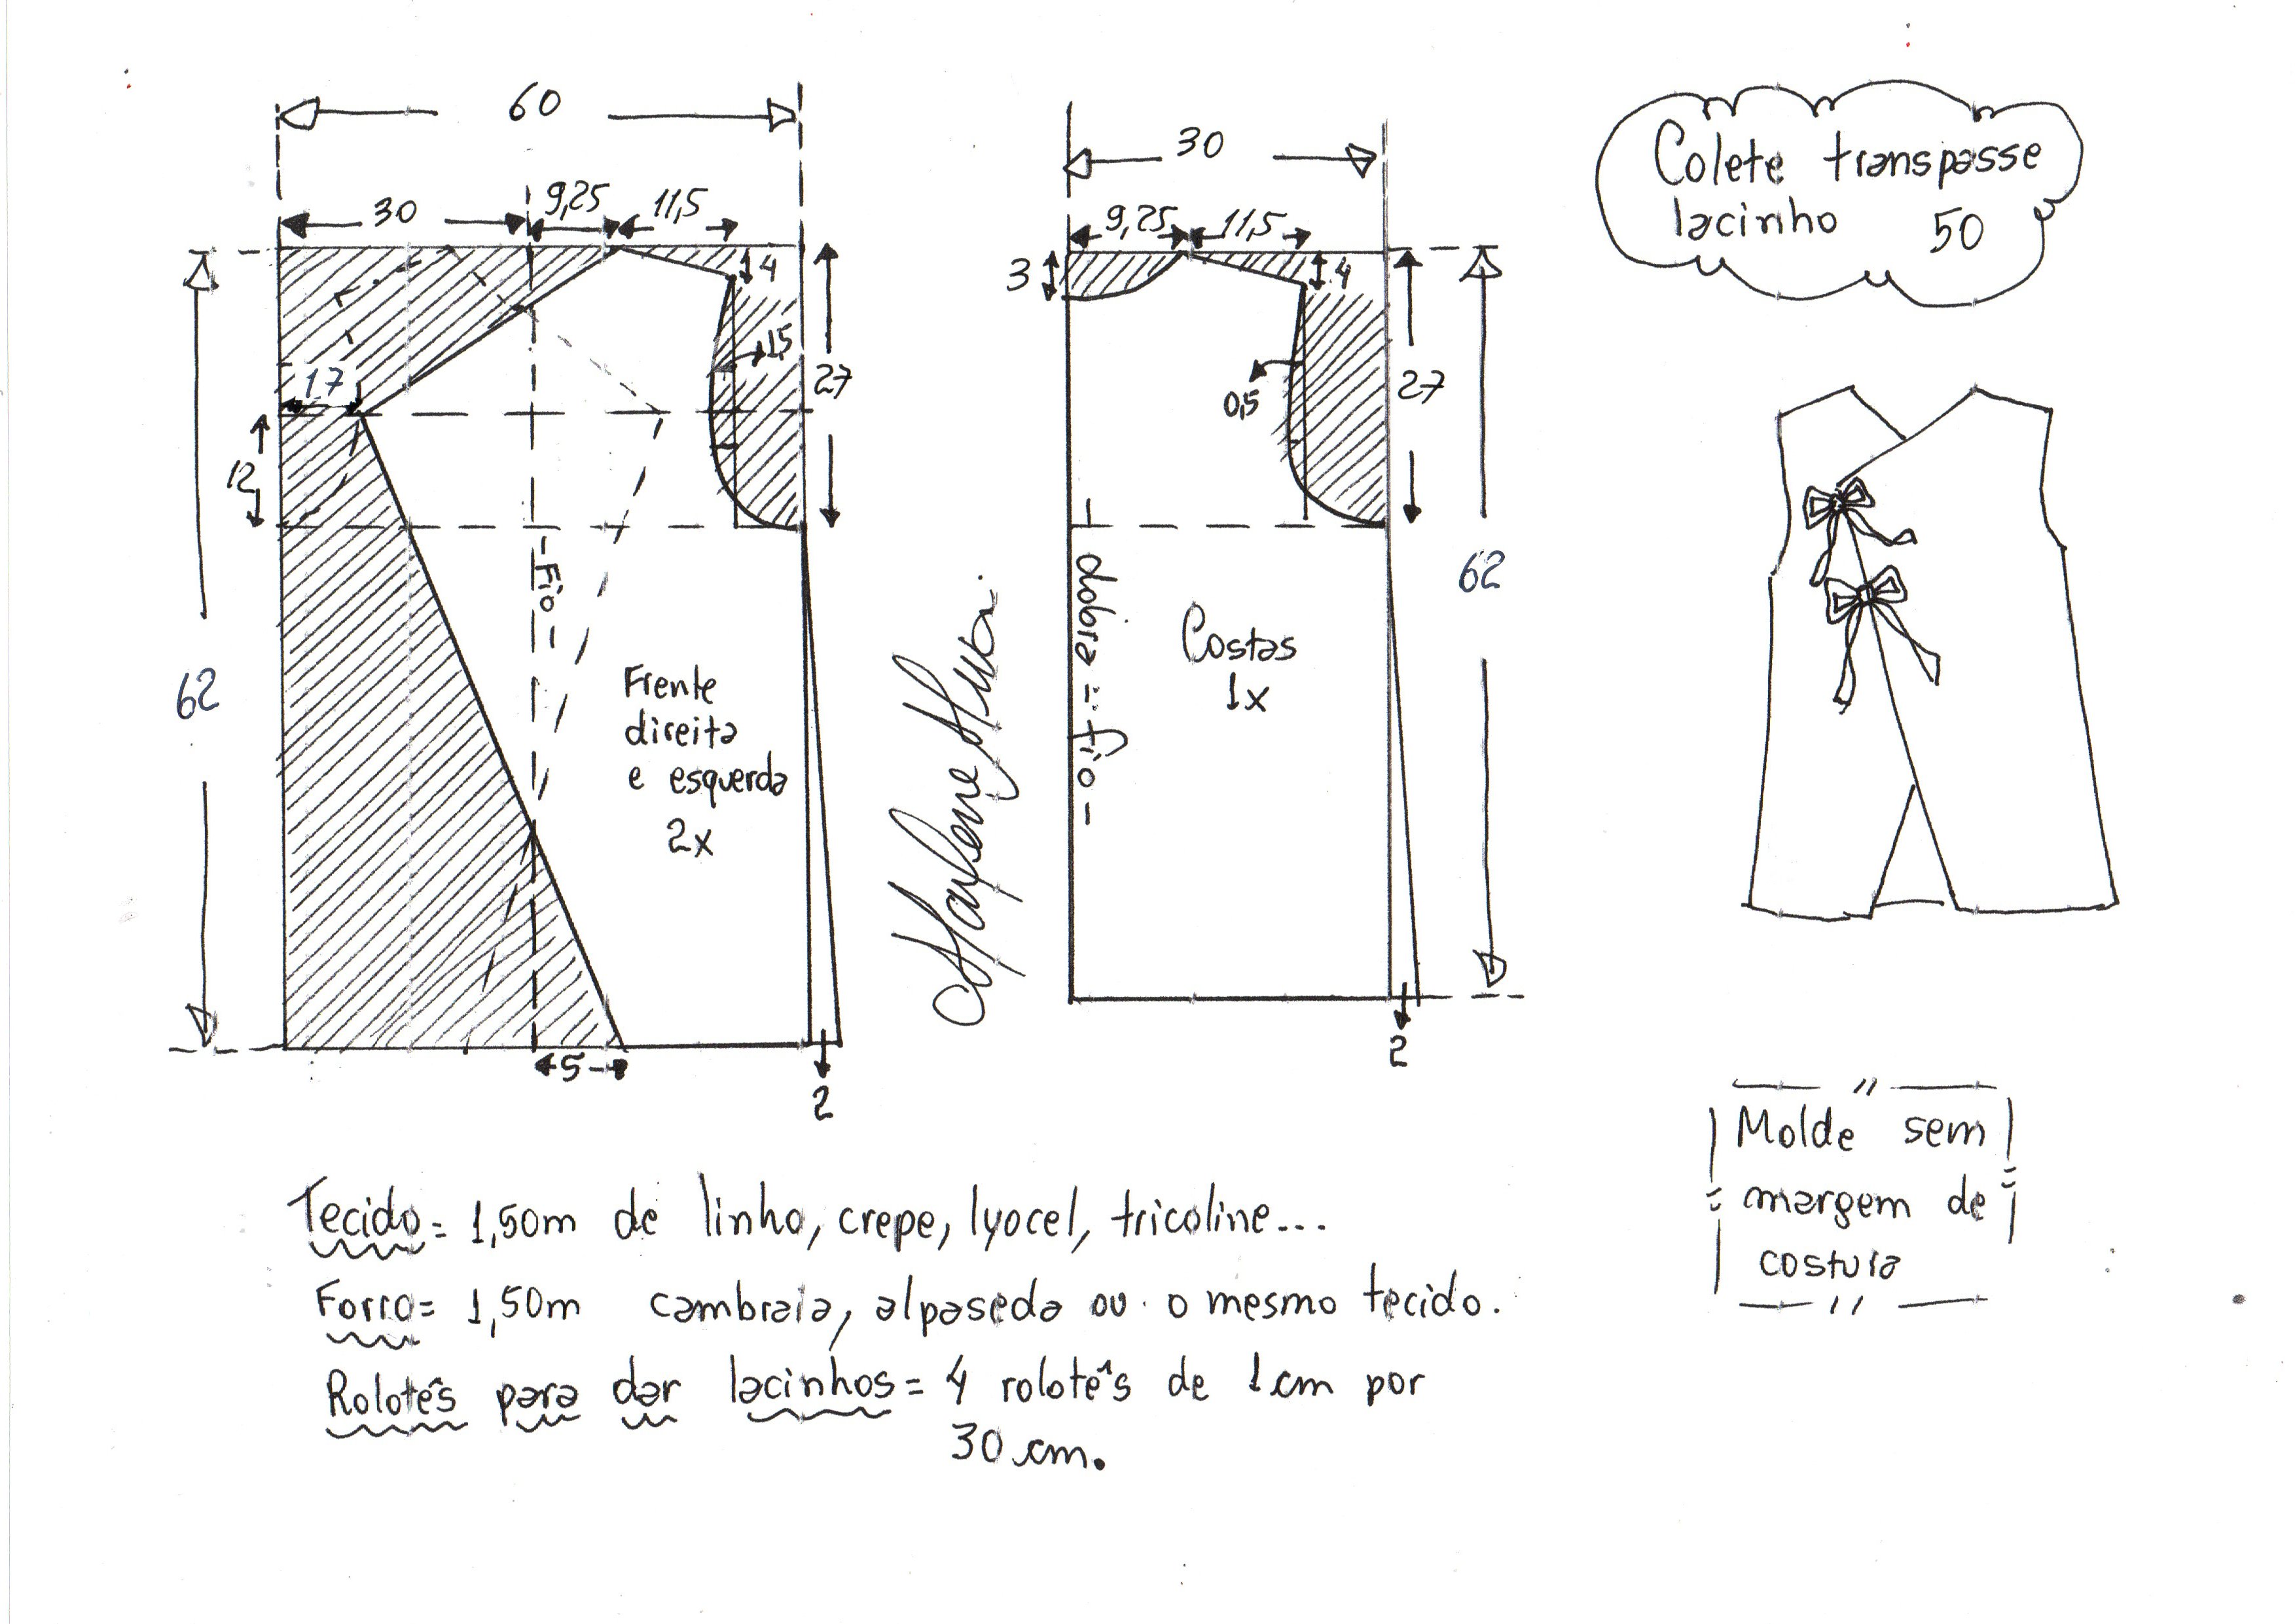 60
30
9,25
11,5
4
1,5
17
12
27
62
- Fio -
Frente
direita
e esquerda
2x
5
2
Marlene Mukai
30
9,25
11,5
3
4
0,5
27
62
- dobra = fio -
Costas
1x
2
Colete transpasse
lacinho 50
Molde sem
margem de
costura
Tecido = 1,50m de linho, crepe, lyocel, tricoline...
Forro = 1,50m cambraia, alpaseda ou o mesmo tecido.
Rolotês para dar lacinhos = 4 rolotês de 1 cm por
30 cm.